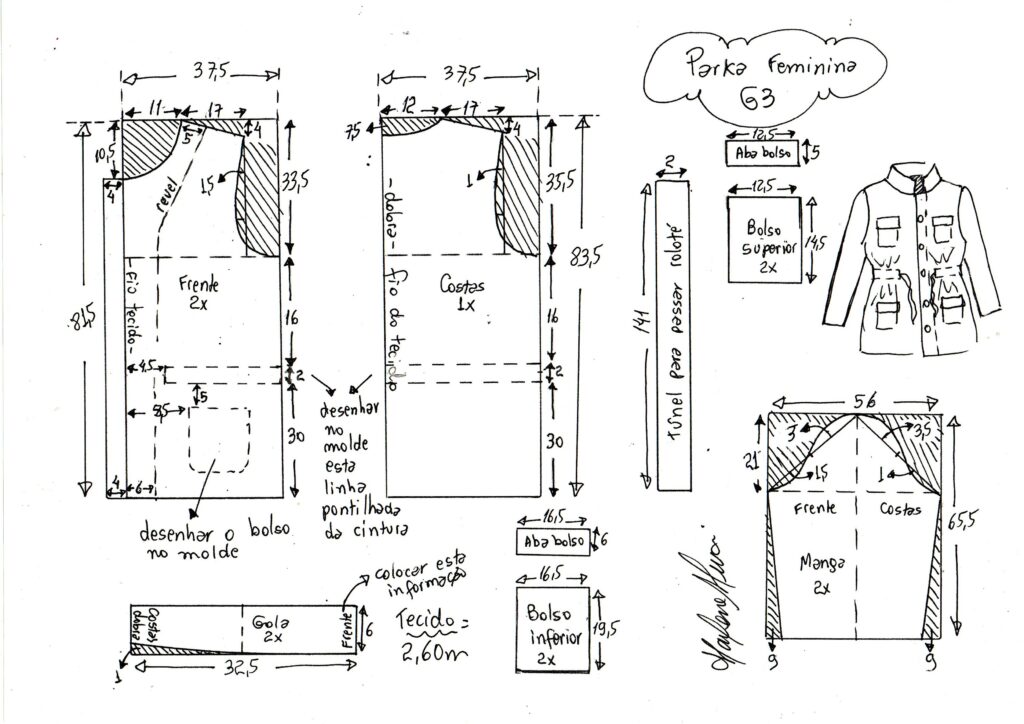 Parka Feminina
G3
37,5
11
17
5
4
10,5
4
revel
1,5
33,5
-fio tecido-
Frente
2x
81,5
16
4,5
2
5
8,5
30
4
6
desenhar o bolso
no molde
37,5
12
17
7,5
4
1
35,5
83,5
-dobra-
fio do tecido
Costas
1x
16
2
30
desenhar
no
molde
esta
linha
pontilhada
da cintura
2
141
Túnel para passar roloté
12,5
Aba bolso
5
12,5
Bolso
superior
2x
14,5
16,5
Aba bolso
6
16,5
Bolso
inferior
2x
19,5
56
3
3,5
21
1,5
1
Frente
Costas
65,5
Manga
2x
9
9
colocar esta
informação
Costas
dobra
Gola
2x
Frente
6
1
32,5
Tecido =
2,60m